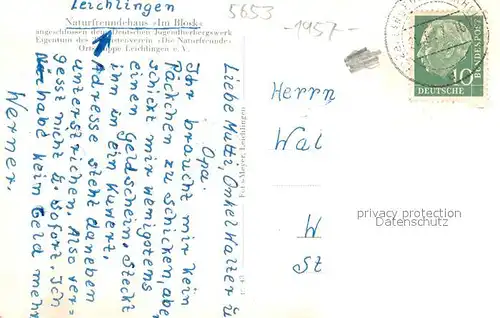 Leichlingen
5653
-1957-
Naturfreundehaus »Im Block«
angeschlossen dem Deutschen Jugendherbergswerk
Eigentum des Touristenverein »Die Naturfreunde«
Ortsgruppe Leichlingen e. V.
Liebe Mutti, Onkel Walter u
Opa.
Ihr braucht mir kein
Päckchen zu schicken, aber
schickt mir wenigstens
einen Geldschein. Steckt
ihn in ein Kuwert.
Adresse steht daneben
unterstrichen. Also ver-
gesst nicht u. sofort. Ich
habe kein Geld mehr
Werner.
Foto-Meyer, Leichlingen
DEUTSCHE
BUNDESPOST
10
Herrn
Wal
W
St
privacy protection
Datenschutz